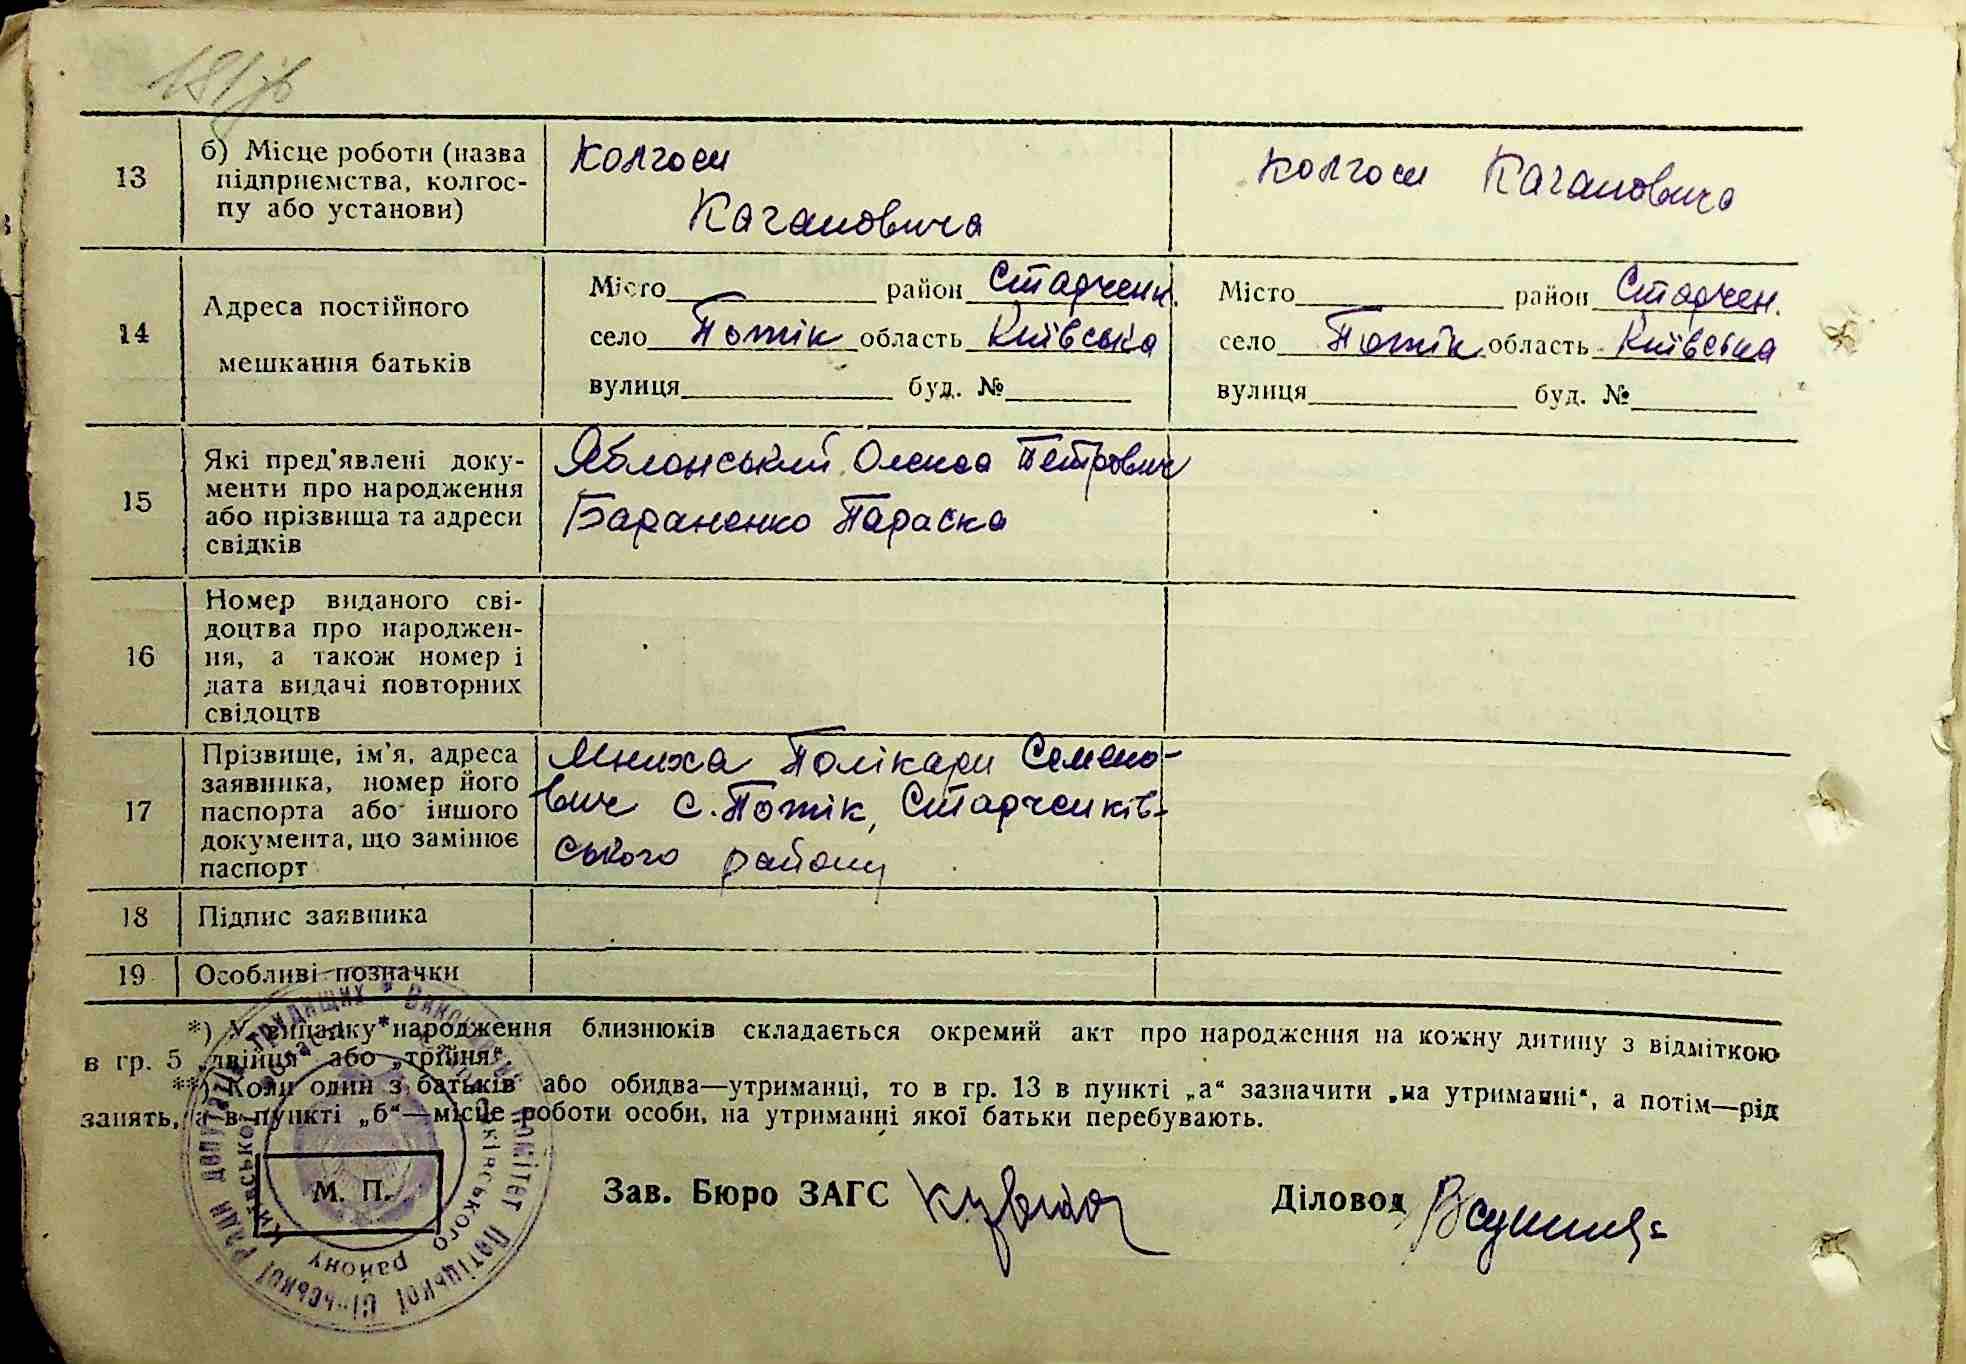 13
б) Місце роботи (назва
підприємства, колгос-
пу або установи)
колгосп
Кагановича
колгосп Кагановича
14
Адреса постійного
мешкання батьків
Місто район Ставченк.
село Потік область Київська
вулиця буд. №
Місто район Ставчен.
село Потік область Київська
вулиця буд. №
15
Які пред'явлені доку-
менти про народження
або прізвища та адреси
свідків
Яблонський Олекса Петрович
Бараненко Параска
16
Номер виданого сві-
доцтва про народжен-
ня, а також номер і
дата видачі повторних
свідоцтв
17
Прізвище, ім'я, адреса
заявника, номер його
паспорта або іншого
документа, що замінює
паспорт
Мниха Полікарп Семено-
вич с. Потік, Ставченків-
ського району
18
Підпис заявника
19
Особливі позначки
*) У випадку народження близнюків складається окремий акт про народження на кожну дитину з відміткою
в гр. 5 „двійня“ або „трійня“.
**) Коли один з батьків або обидва—утриманці, то в гр. 13 в пункті „а“ зазначити „на утриманні“, а потім—рід
занять, а в пункті „б“—місце роботи особи, на утриманні якої батьки перебувають.
М. П.
Зав. Бюро ЗАГС
Діловод
Виконавчий комітет Потіцької сільської ради депутатів трудящих
району Київської області